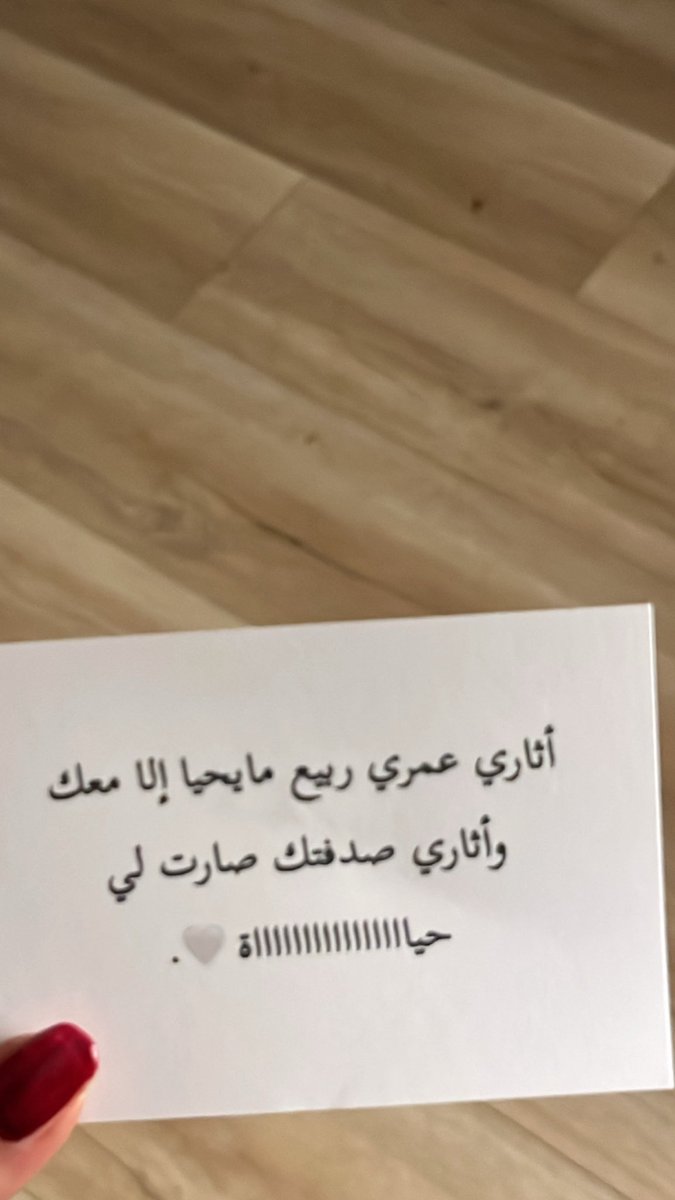 أثاري عمري ربيع مايحيا إلا معك
وأثاري صدفتك صارت لي
حياااااااااااااااااة 🤍.